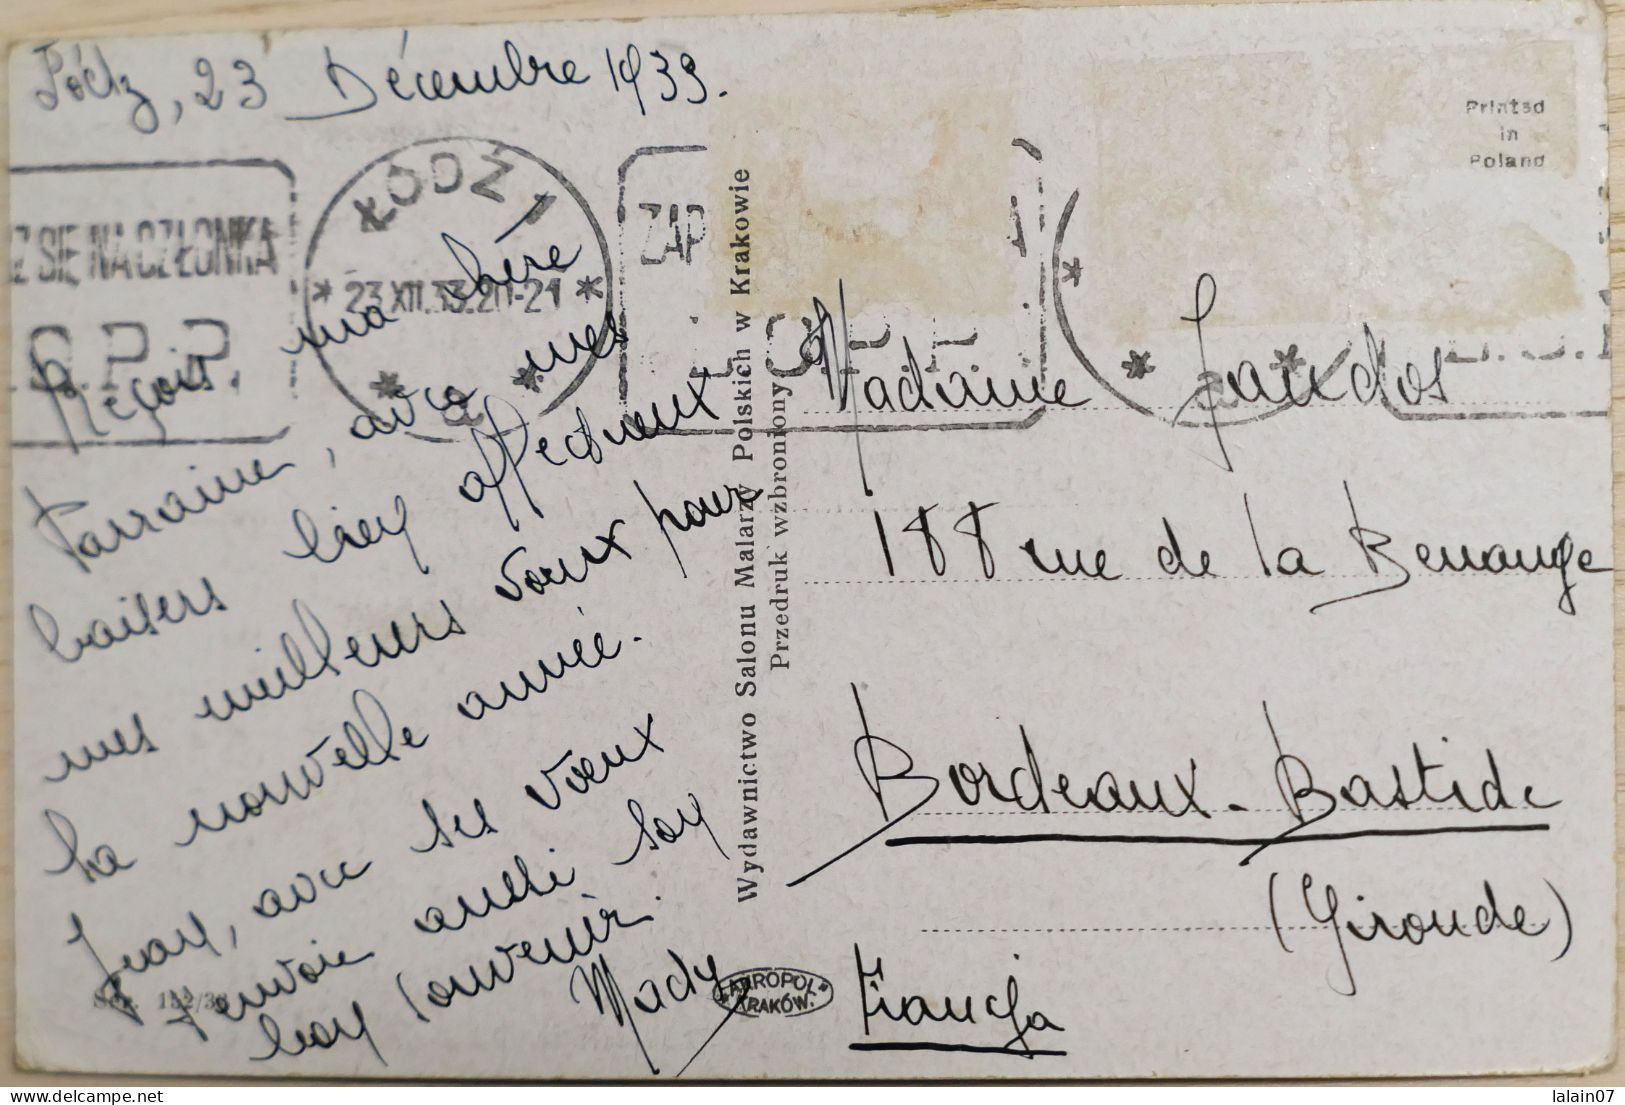 Łódz, 23 Décembre 1933.
Reçois ma chère
Marraine, avec mes
baisers bien affectueux
mes meilleurs voeux pour
la nouvelle année.
Jean, avec ses voeux
t'envoie aussi son
bon souvenir.
Mady
Z SIĘ NA CZŁONKA
L.O.P.P.
ŁÓDŹ 1
* 23 XII.33.20-21 *
* a *
ZAP
L.O.P.P.
Printed
in
Poland
Wydawnictwo Salonu Malarzy Polskich w Krakowie
Przedruk wzbroniony
Madame Jaurdos
188 rue de la Benauge
Bordeaux-Bastide
(Gironde)
Francja
"AKROPOL"
KRAKÓW.
lalain07